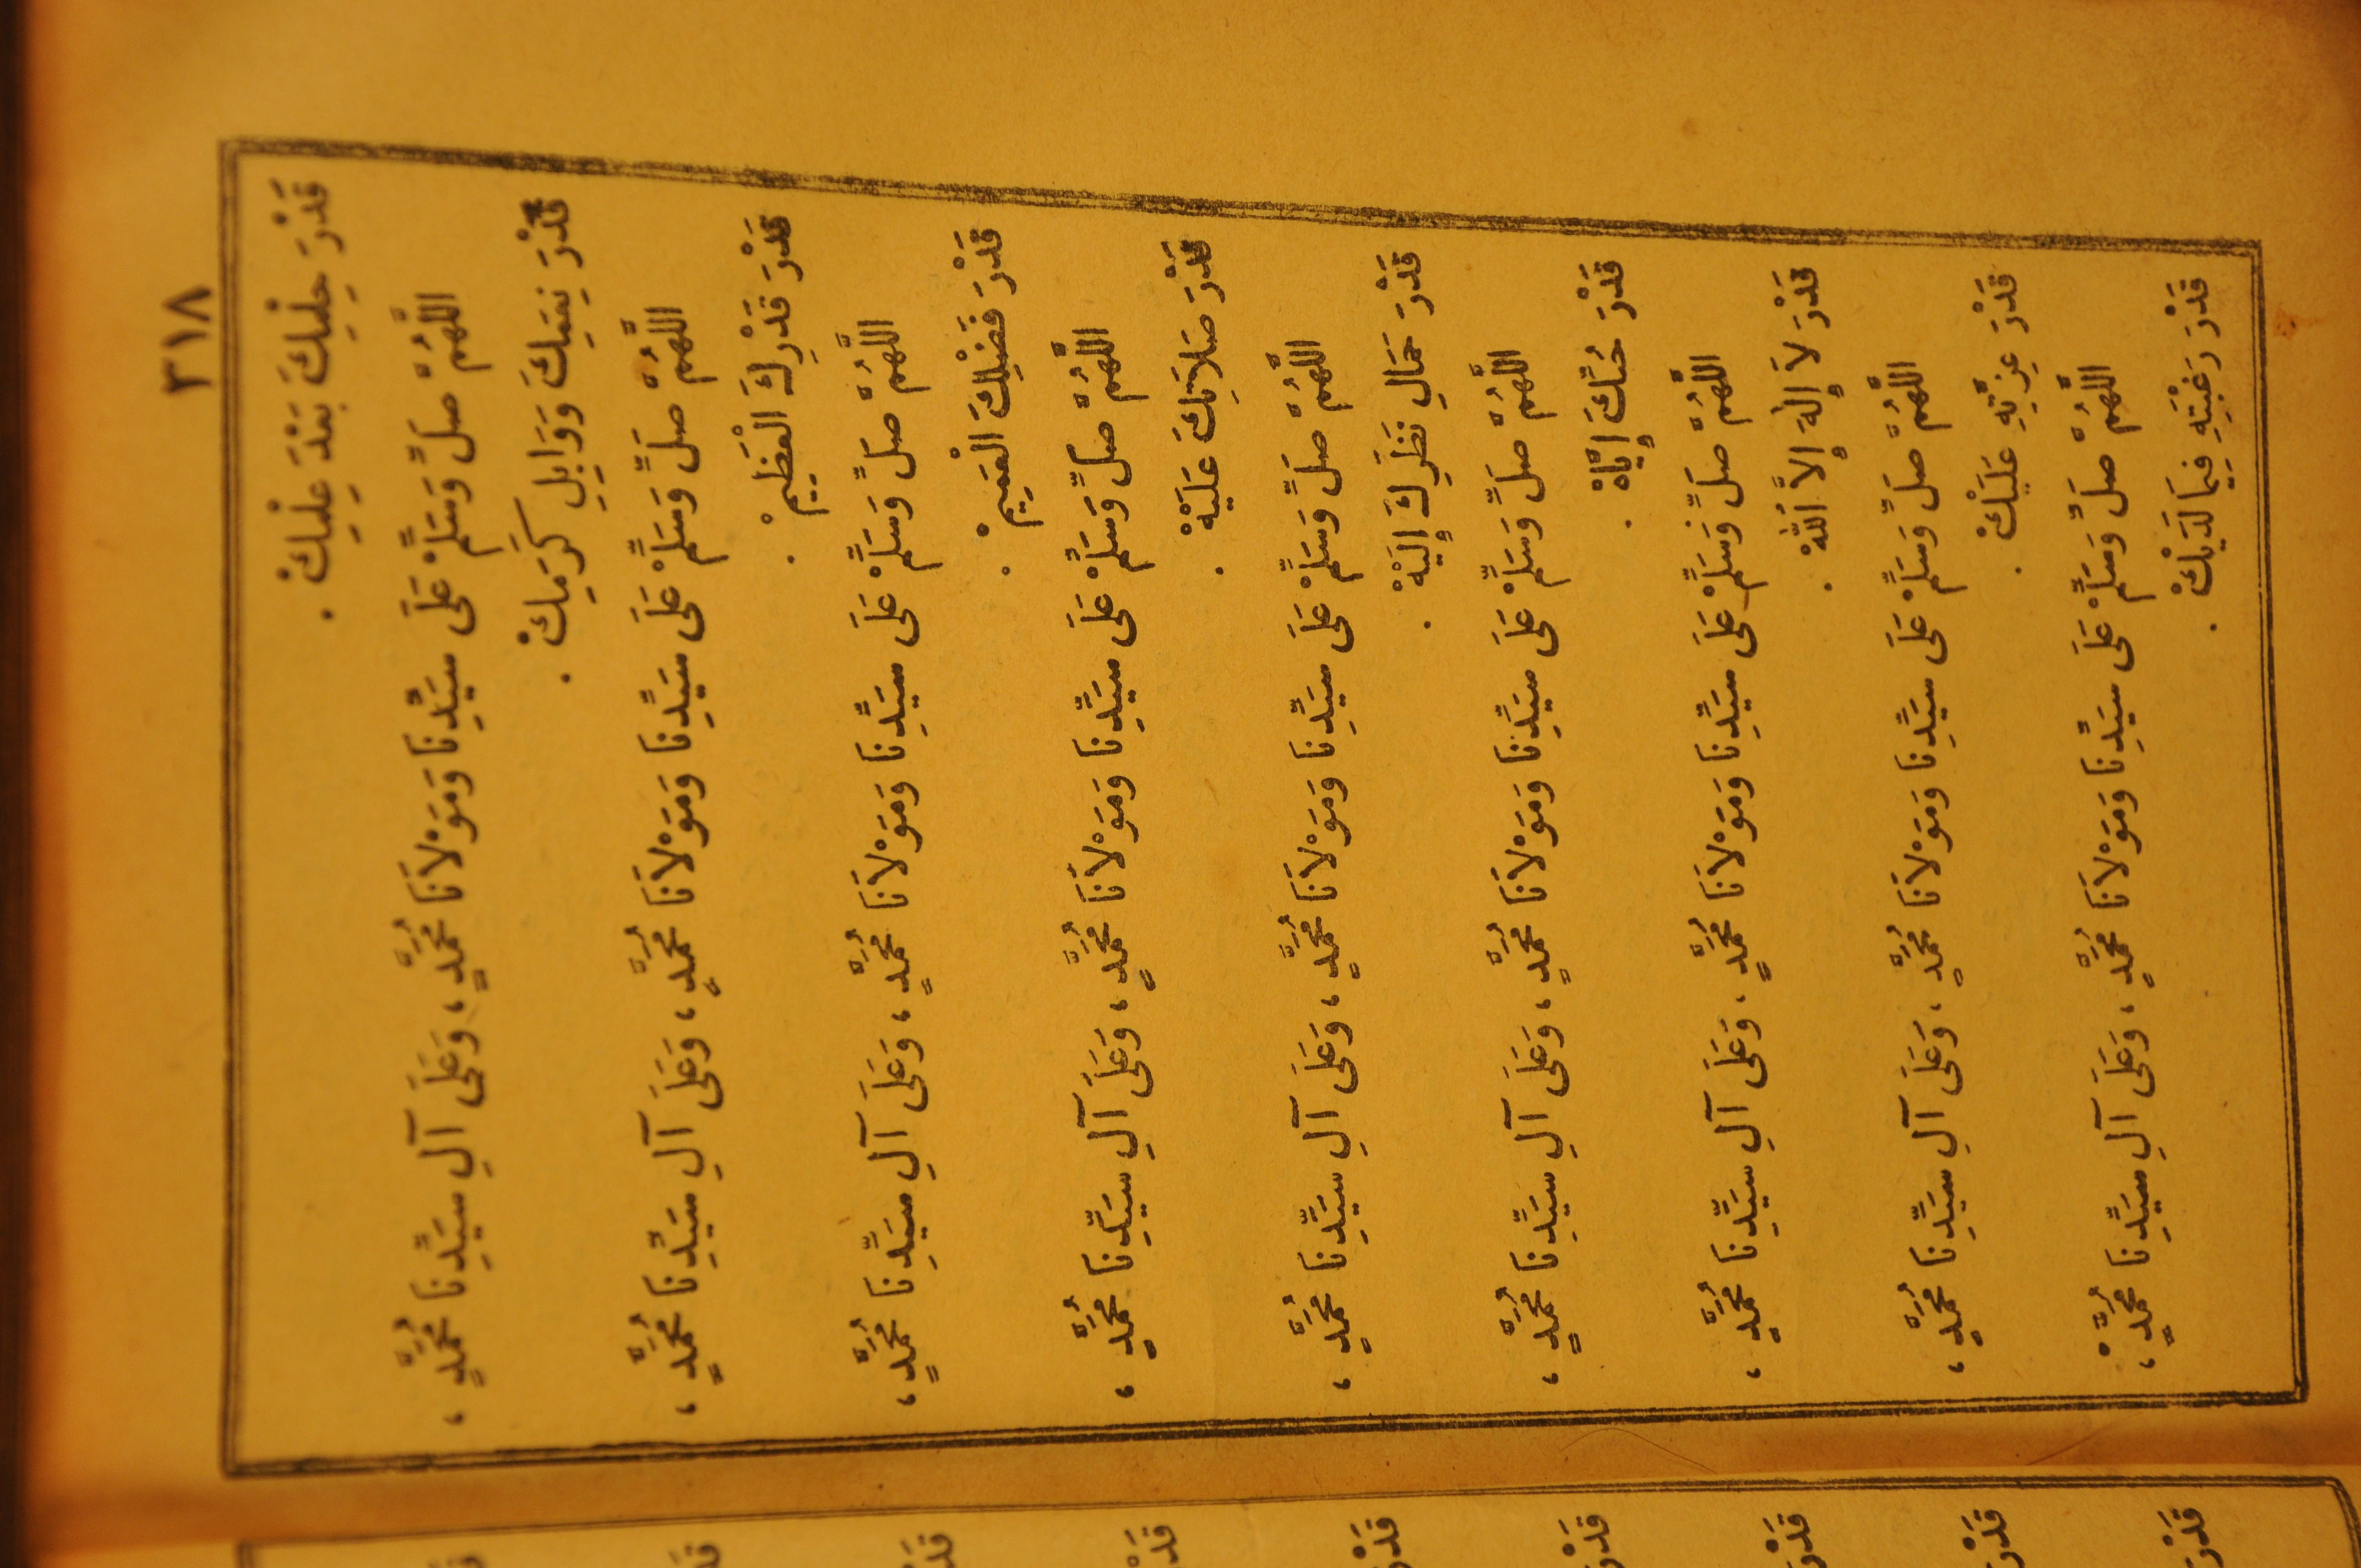 ٣١٨
قَدْرَ حِلْمِكَ بَعْدَ عِلْمِكْ .
اللَّهُمَّ صَلِّ وَسَلِّمْ عَلَى سَيِّدِنَا وَمَوْلَانَا مُحَمَّدٍ، وَعَلَى آلِ سَيِّدِنَا مُحَمَّدٍ،
قَدْرَ نِعَمِكَ وَوَابِلِ كَرَمِكْ .
اللَّهُمَّ صَلِّ وَسَلِّمْ عَلَى سَيِّدِنَا وَمَوْلَانَا مُحَمَّدٍ، وَعَلَى آلِ سَيِّدِنَا مُحَمَّدٍ،
قَدْرَ قَدْرِكَ الْعَظِيمْ .
اللَّهُمَّ صَلِّ وَسَلِّمْ عَلَى سَيِّدِنَا وَمَوْلَانَا مُحَمَّدٍ، وَعَلَى آلِ سَيِّدِنَا مُحَمَّدٍ،
قَدْرَ فَضْلِكَ الْعَمِيمْ .
اللَّهُمَّ صَلِّ وَسَلِّمْ عَلَى سَيِّدِنَا وَمَوْلَانَا مُحَمَّدٍ، وَعَلَى آلِ سَيِّدِنَا مُحَمَّدٍ،
قَدْرَ صَلَاتِكَ عَلَيْهْ .
اللَّهُمَّ صَلِّ وَسَلِّمْ عَلَى سَيِّدِنَا وَمَوْلَانَا مُحَمَّدٍ، وَعَلَى آلِ سَيِّدِنَا مُحَمَّدٍ،
قَدْرَ جَمَالِ نَظَرِكَ إِلَيْهْ .
اللَّهُمَّ صَلِّ وَسَلِّمْ عَلَى سَيِّدِنَا وَمَوْلَانَا مُحَمَّدٍ، وَعَلَى آلِ سَيِّدِنَا مُحَمَّدٍ،
قَدْرَ حُبِّكَ إِيَّاهْ .
اللَّهُمَّ صَلِّ وَسَلِّمْ عَلَى سَيِّدِنَا وَمَوْلَانَا مُحَمَّدٍ، وَعَلَى آلِ سَيِّدِنَا مُحَمَّدٍ،
قَدْرَ لَا إِلٰهَ إِلَّا اللهْ .
اللَّهُمَّ صَلِّ وَسَلِّمْ عَلَى سَيِّدِنَا وَمَوْلَانَا مُحَمَّدٍ، وَعَلَى آلِ سَيِّدِنَا مُحَمَّدٍ،
قَدْرَ عِزَّتِهِ عَلَيْكْ .
اللَّهُمَّ صَلِّ وَسَلِّمْ عَلَى سَيِّدِنَا وَمَوْلَانَا مُحَمَّدٍ، وَعَلَى آلِ سَيِّدِنَا مُحَمَّدٍ،
قَدْرَ رَغْبَتِهِ فِيمَا لَدَيْكْ .